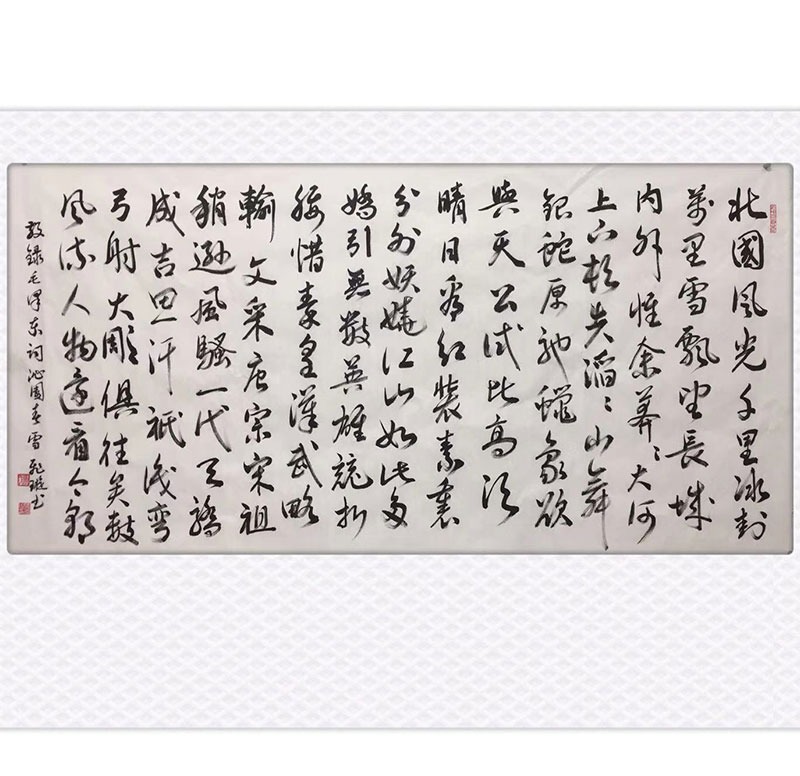 北國风光千里冰封
萬里雪飄望長城
内外惟余莽々大河
上下頓失滔々山舞
銀蛇原馳蠟象欲
與天公試比高須
晴日看紅裝素裹
分外妖嬈江山如此多
嬌引無數英雄競折
腰惜秦皇漢武略
輸文采唐宗宋祖
稍遜風騷一代天驕
成吉思汗祇識彎
弓射大雕俱往矣數
风流人物還看今朝
敬錄毛澤东词沁園春雪 书